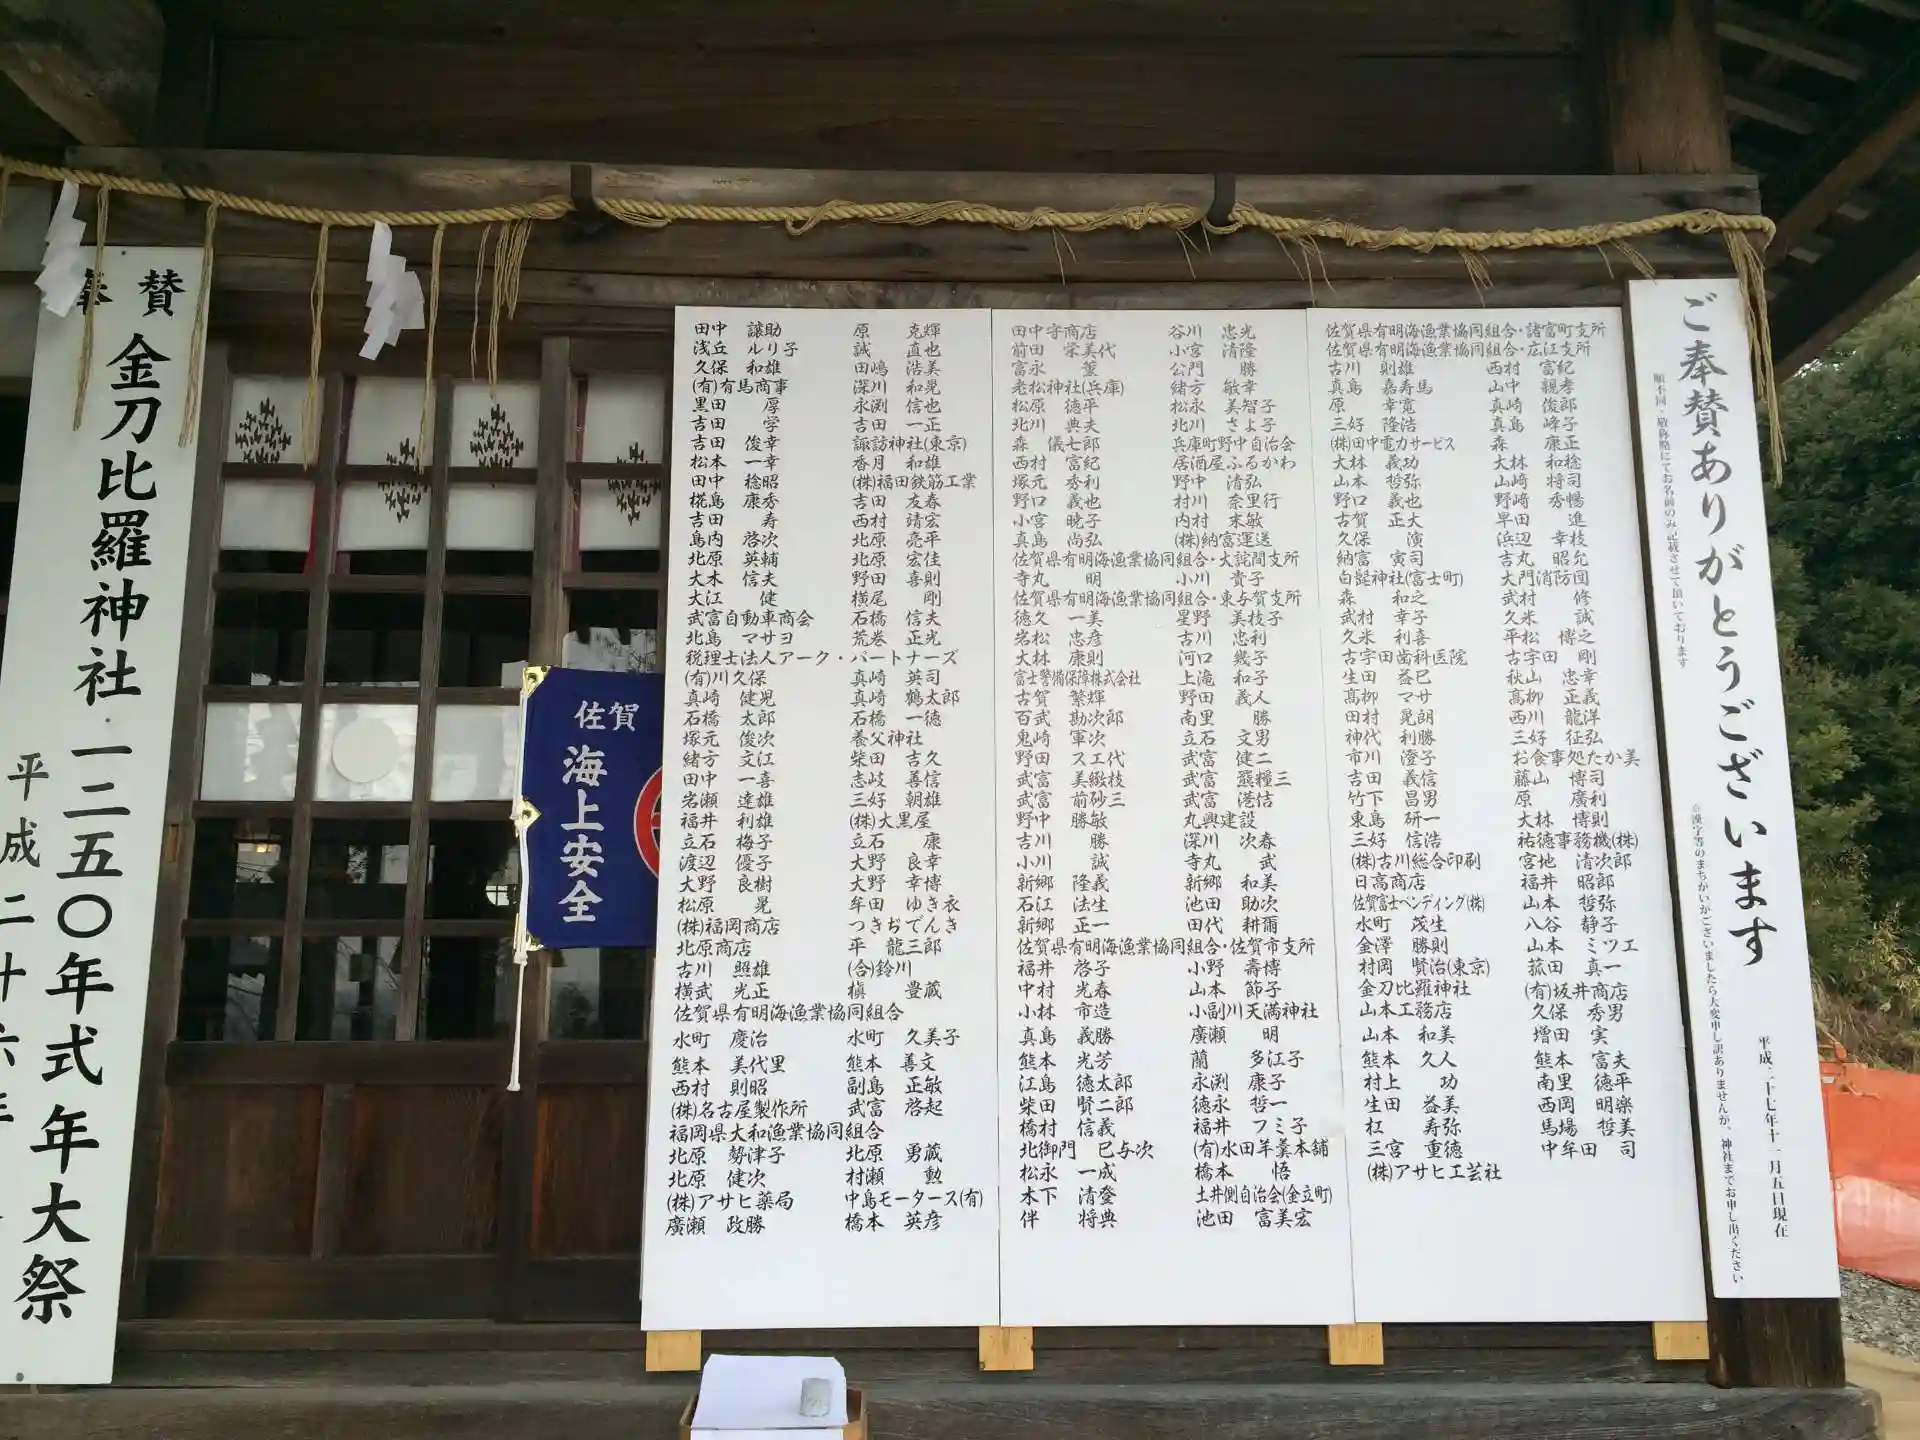 奉賛
金刀比羅神社・一二五〇年式年大祭
平成二十六年
佐賀
海上安全
田中 譲助 原 克輝
浅丘 ルリ子 誠 直也
久保 和雄 田嶋 浩美
(有)有馬商事 深川 和晃
黒田 厚 永渕 信也
吉田 学 吉田 一正
吉田 俊幸 諏訪神社(東京)
松本 一幸 香月 和雄
田中 稔昭 (株)福田鉄筋工業
椛島 康秀 吉田 友春
吉田 寿 西村 靖宏
島内 啓次 北原 亮平
北原 英輔 北原 宏佳
大木 信夫 野田 喜則
大江 健 横尾 剛
武富自動車商会 石橋 信夫
北島 マサヨ 荒巻 正光
税理士法人アーク・パートナーズ
(有)川久保 真崎 英司
真崎 健児 真崎 鶴太郎
石橋 太郎 石橋 一徳
塚元 俊次 養父神社
緒方 文江 柴田 吉久
田中 一喜 志岐 善信
岩瀬 達雄 三好 朝雄
福井 利雄 (株)大黒屋
立石 梅子 立石 康
渡辺 優子 大野 良幸
大野 良樹 大野 幸博
松原 晃 牟田 ゆき衣
(株)福岡商店 つきぢでんき
北原商店 平 龍三郎
古川 照雄 (合)鈴川
横武 光正 槇 豊蔵
佐賀県有明海漁業協同組合
水町 慶治 水町 久美子
熊本 美代里 熊本 善文
西村 則昭 副島 正敏
(株)名古屋製作所 武富 啓起
福岡県大和漁業協同組合
北原 勢津子 北原 勇蔵
北原 健次 村瀬 勲
(株)アサヒ薬局 中島モータース(有)
廣瀬 政勝 橋本 英彦
田中守商店 谷川 忠光
前田 栄美代 小宮 清隆
富永 薫 公門 勝
老松神社(兵庫) 緒方 敏幸
松原 徳平 松永 美智子
北川 典夫 北川 さよ子
森 儀七郎 兵庫町野中自治会
西村 富紀 居酒屋ふるかわ
塚元 秀利 野中 清弘
野口 義也 村川 奈里行
小宮 暁子 内村 末敏
真島 尚弘 (株)納富運送
佐賀県有明海漁業協同組合・大詫間支所
寺丸 明 小川 貴子
佐賀県有明海漁業協同組合・東与賀支所
徳久 一美 星野 美枝子
岩松 忠彦 古川 忠利
大林 康則 河口 幾子
富士警備保障株式会社 上滝 和子
古賀 繁輝 野田 義人
百武 勘次郎 南里 勝
鬼崎 軍次 立石 文男
野田 スエ代 武富 健二
武富 美緻枝 武富 羆糧三
武富 前砂三 武富 港佶
野中 勝敏 丸興建設
吉川 勝 深川 次春
小川 誠 寺丸 武
新郷 隆義 新郷 和美
石江 法生 池田 助次
新郷 正一 田代 耕爾
佐賀県有明海漁業協同組合・佐賀市支所
福井 啓子 小野 壽博
中村 光春 山本 節子
小林 市造 小副川天満神社
真島 義勝 廣瀬 明
熊本 光芳 蘭 多江子
江島 徳太郎 永渕 康子
柴田 賢二郎 徳永 哲一
橋村 信義 福井 フミ子
北御門 巳与次 (有)水田羊羹本舗
松永 一成 橋本 悟
木下 清登 土井側自治会(金立町)
伴 将典 池田 富美宏
佐賀県有明海漁業協同組合・諸富町支所
佐賀県有明海漁業協同組合・広江支所
古川 則雄 西村 富紀
真島 嘉寿馬 山中 親孝
原 幸寛 真崎 俊郎
三好 隆浩 真島 峰子
(株)田中電力サービス 森 康正
大林 義功 大林 和稔
山本 哲弥 山崎 将司
野口 義也 山野﨑 秀暢
古賀 正大 早田 進
久保 演 浜辺 幸枝
納富 寅司 吉丸 昭允
白髭神社(富士町) 大門消防団
森 和之 武村 修
武村 幸子 久米 誠
久米 利喜 平松 博之
古宇田歯科医院 古宇田 剛
生田 益巳 秋山 忠幸
高柳 マサ 高柳 正義
田村 晃朗 西川 龍洋
神代 利勝 三好 征弘
市川 澄子 お食事処たか美
吉田 義信 藤山 博司
竹下 昌男 原 廣利
東島 研一 大林 博則
三好 信浩 祐徳事務機(株)
(株)古川総合印刷 宮地 清次郎
日高商店 福井 昭郎
佐賀富士ベンディング(株) 山本 哲弥
水町 茂生 八谷 静子
金澤 勝則 山本 ミツエ
村岡 賢治(東京) 菰田 真一
金刀比羅神社 (有)坂井商店
山本工務店 久保 秀男
山本 和美 増田 実
熊本 久人 熊本 富夫
村上 功 南里 徳平
生田 益美 西岡 明楽
杠 寿弥 馬場 哲美
三宮 重徳 中牟田 司
(株)アサヒ工芸社
ご奉賛ありがとうございます
順不同・敬称略にてお名前のみ記載させて頂いております
※漢字等のまちがいがございましたら大変申し訳ありませんが、神社までお申し出ください
平成二十七年十一月五日現在